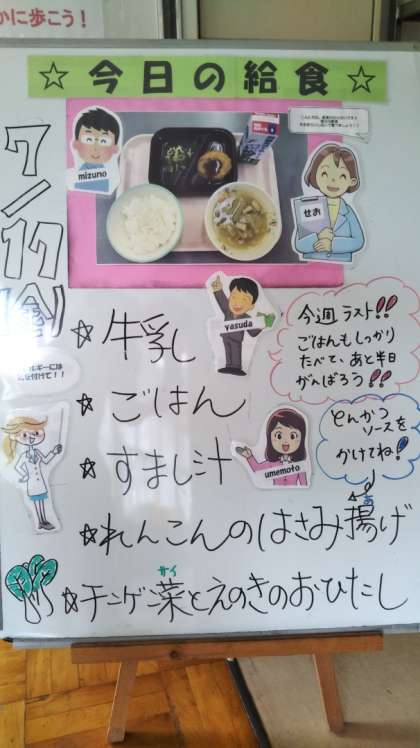 かに歩こう！
☆今日の給食☆
7/17(金)
mizuno
せお
yasuda
☆牛乳
☆ごはん
☆すまし汁
☆れんこんのはさみ揚げ
あ
☆チンゲン菜とえのきのおひたし
サイ
今週ラスト!!
ごはんもしっかり
たべて、あと半日
がんばろう!!
umemoto
とんかつ
ソースを
かけてね!